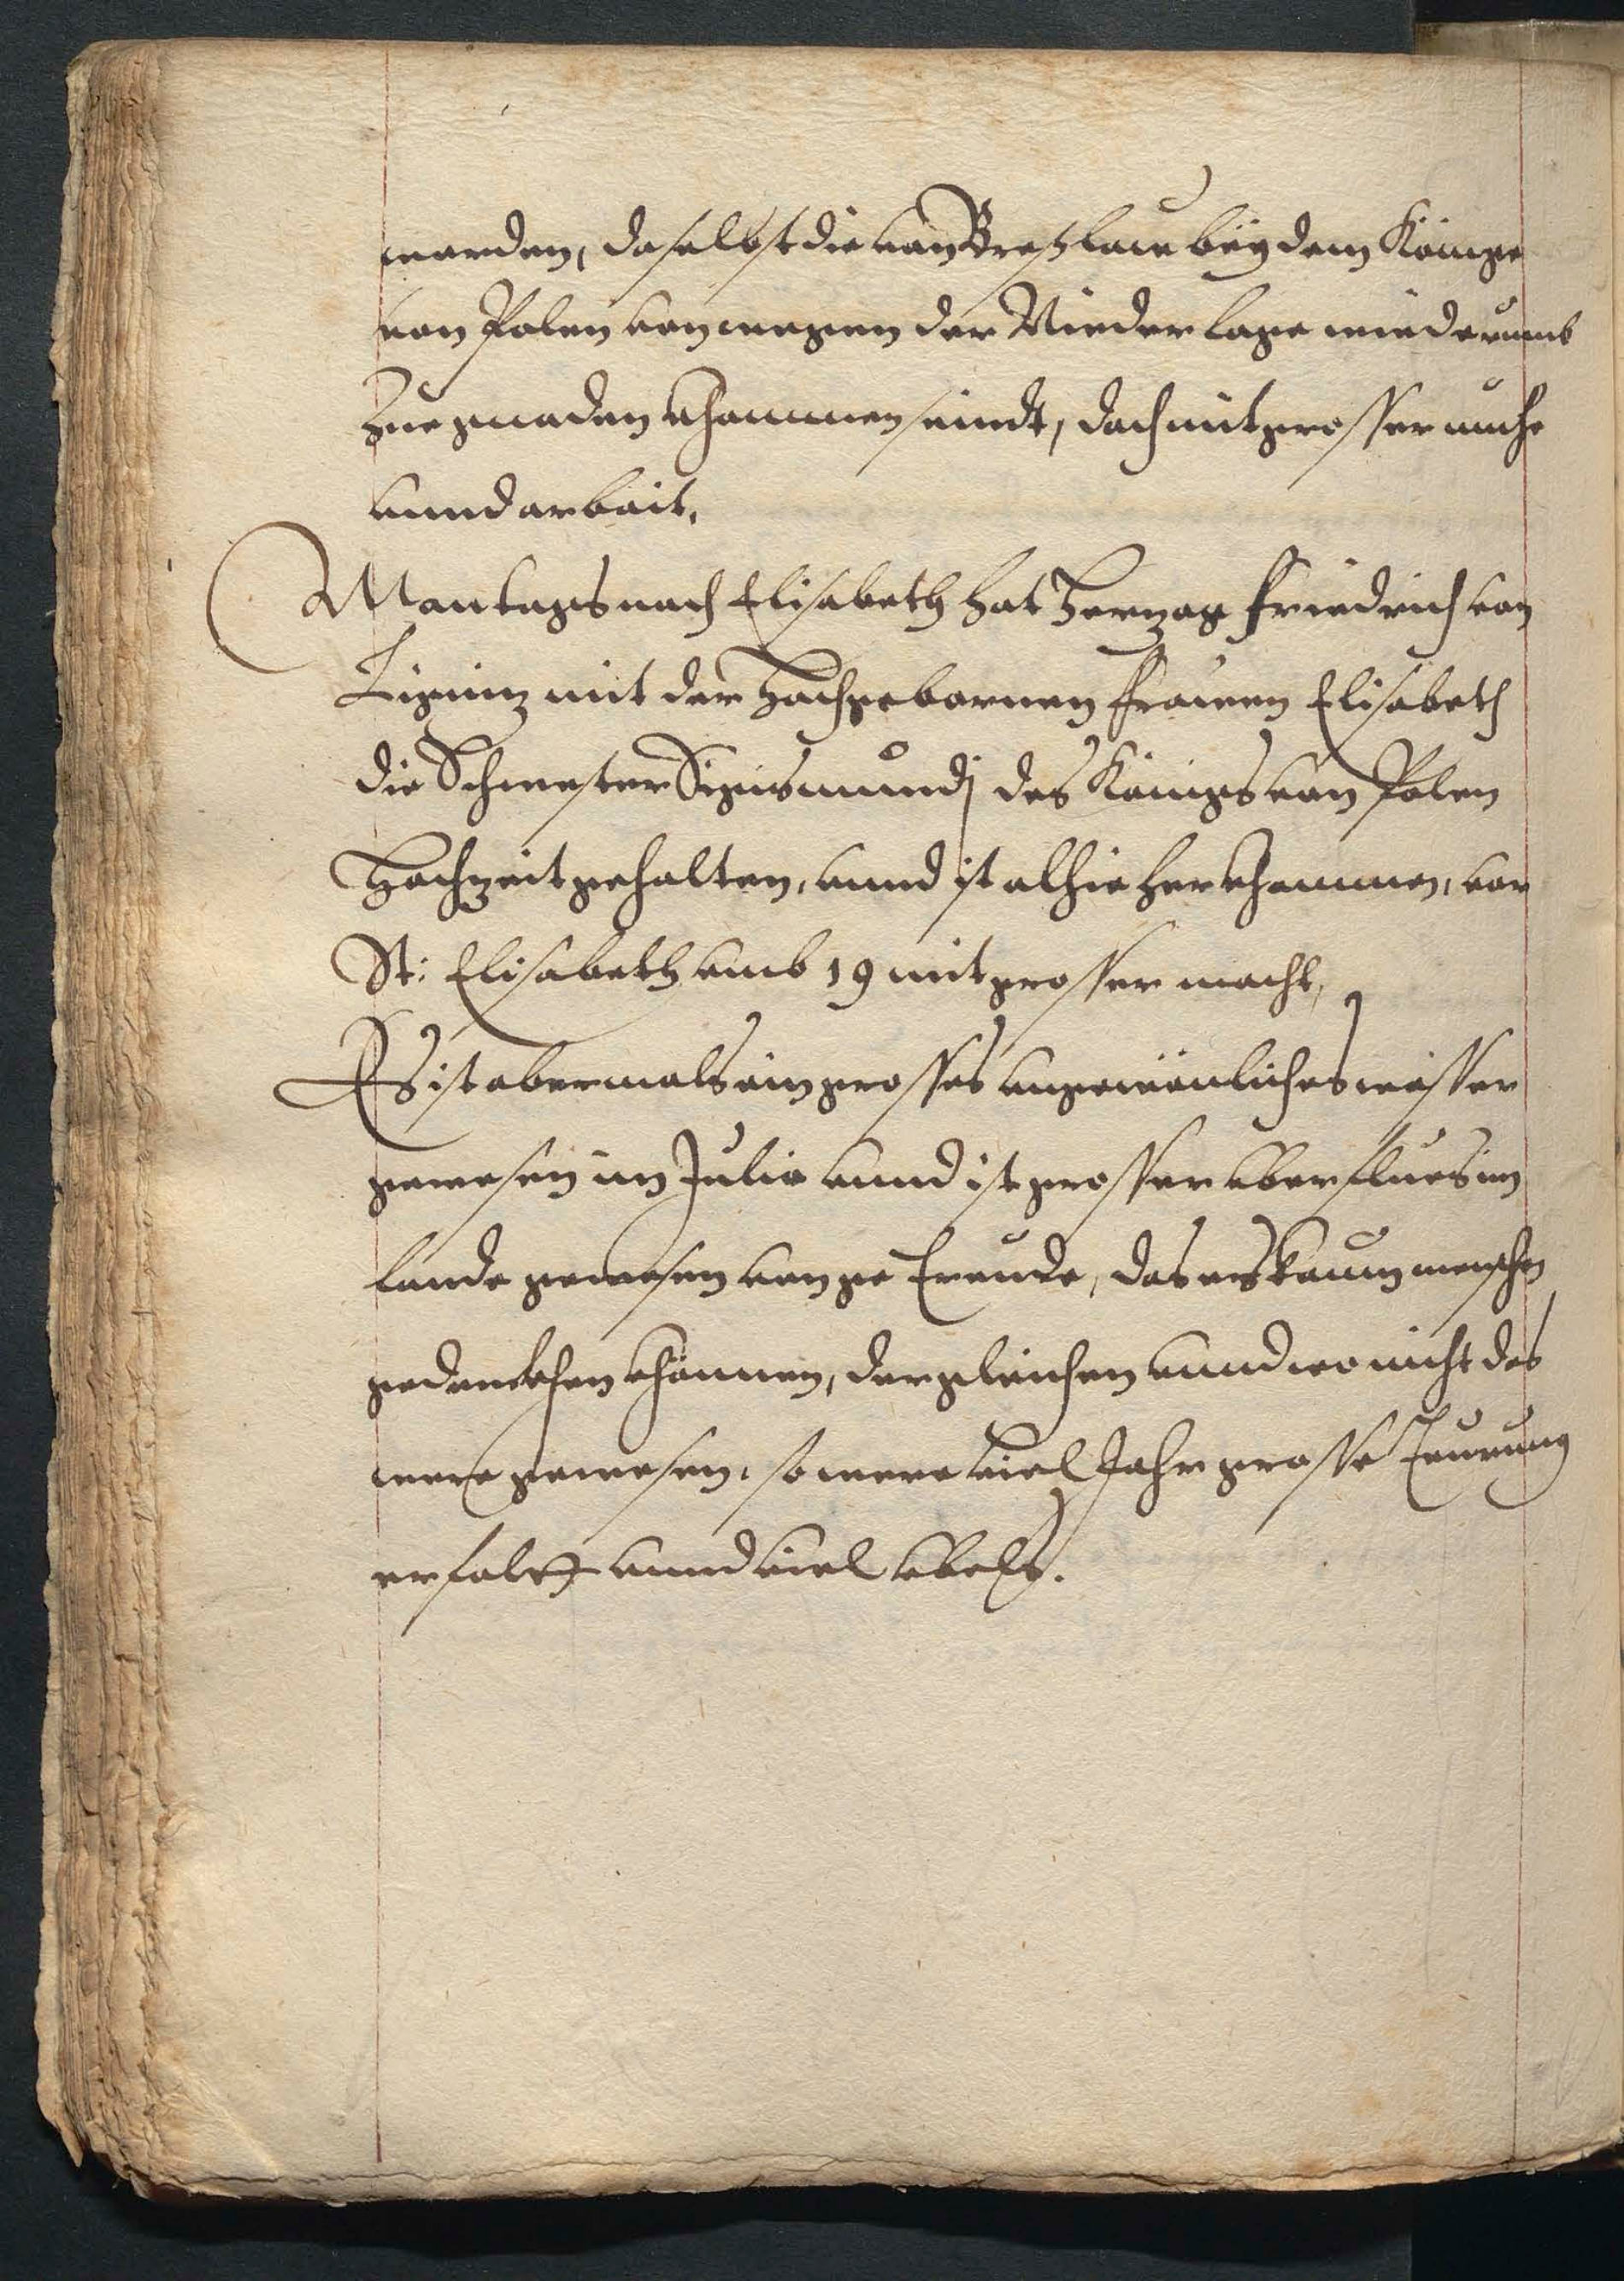 worden, daselbst die von Breßlaw beÿ dem Könige
von Polen von wegen der Niederlage wiederumb
zue gnaden khommen seindt, doch mit grosser muehe
vnnd arbeit,
Montags nach Elisabeth hat Herzog Friedrich von
Ligniz mit der Hochgebornen Frawen Elisabeth
die Schwester Sigismundj des Königs von Polen
Hochzeit gehalten, vnnd ist alhie her khommen, vor
St: Elisabeth vmb 19 mit grosser macht,
Es ist abermals ein grosses vngewönliches wasser
gewesen im Julio vnnd ist grosser vberflues im
lande gewesen von ge Treude, das es kaum menschen
gedenckhen khönnen, dergleichen vnnd wo nicht das
were gewesen, so were viel Jahr grosse Teurung
erfolgt vnnd viel vbels.